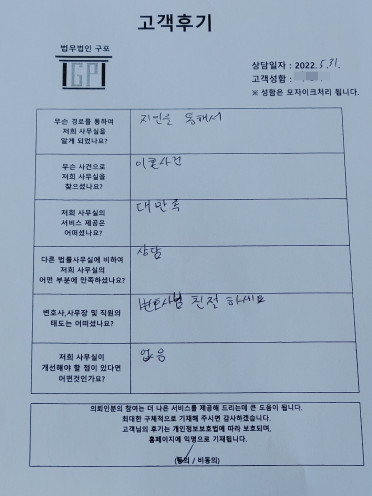 고객후기
법무법인 구포
GP
상담일자 : 2022. 5. 31.
고객성함 :
※ 성함은 모자이크처리 됩니다.
무슨 경로를 통하여
저희 사무실을
알게 되었나요?
지인을 통해서
무슨 사건으로
저희 사무실을
찾으셨나요?
이혼사건
저희 사무실의
서비스 제공은
어떠셨나요?
대만족
다른 법률사무실에 비하여
저희 사무실의
어떤 부분에 만족하셨나요?
상담
변호사,사무장 및 직원의
태도는 어떠셨나요?
변호사님 친절 하세요
저희 사무실이
개선해야 할 점이 있다면
어떤것인가요?
없음
의뢰인분의 참여는 더 나은 서비스를 제공해 드리는데 큰 도움이 됩니다.
최대한 구체적으로 기재해 주시면 감사하겠습니다.
고객님의 후기는 개인정보보호법에 따라 보호되며,
홈페이지에 익명으로 기재됩니다.
(동의 / 비동의)